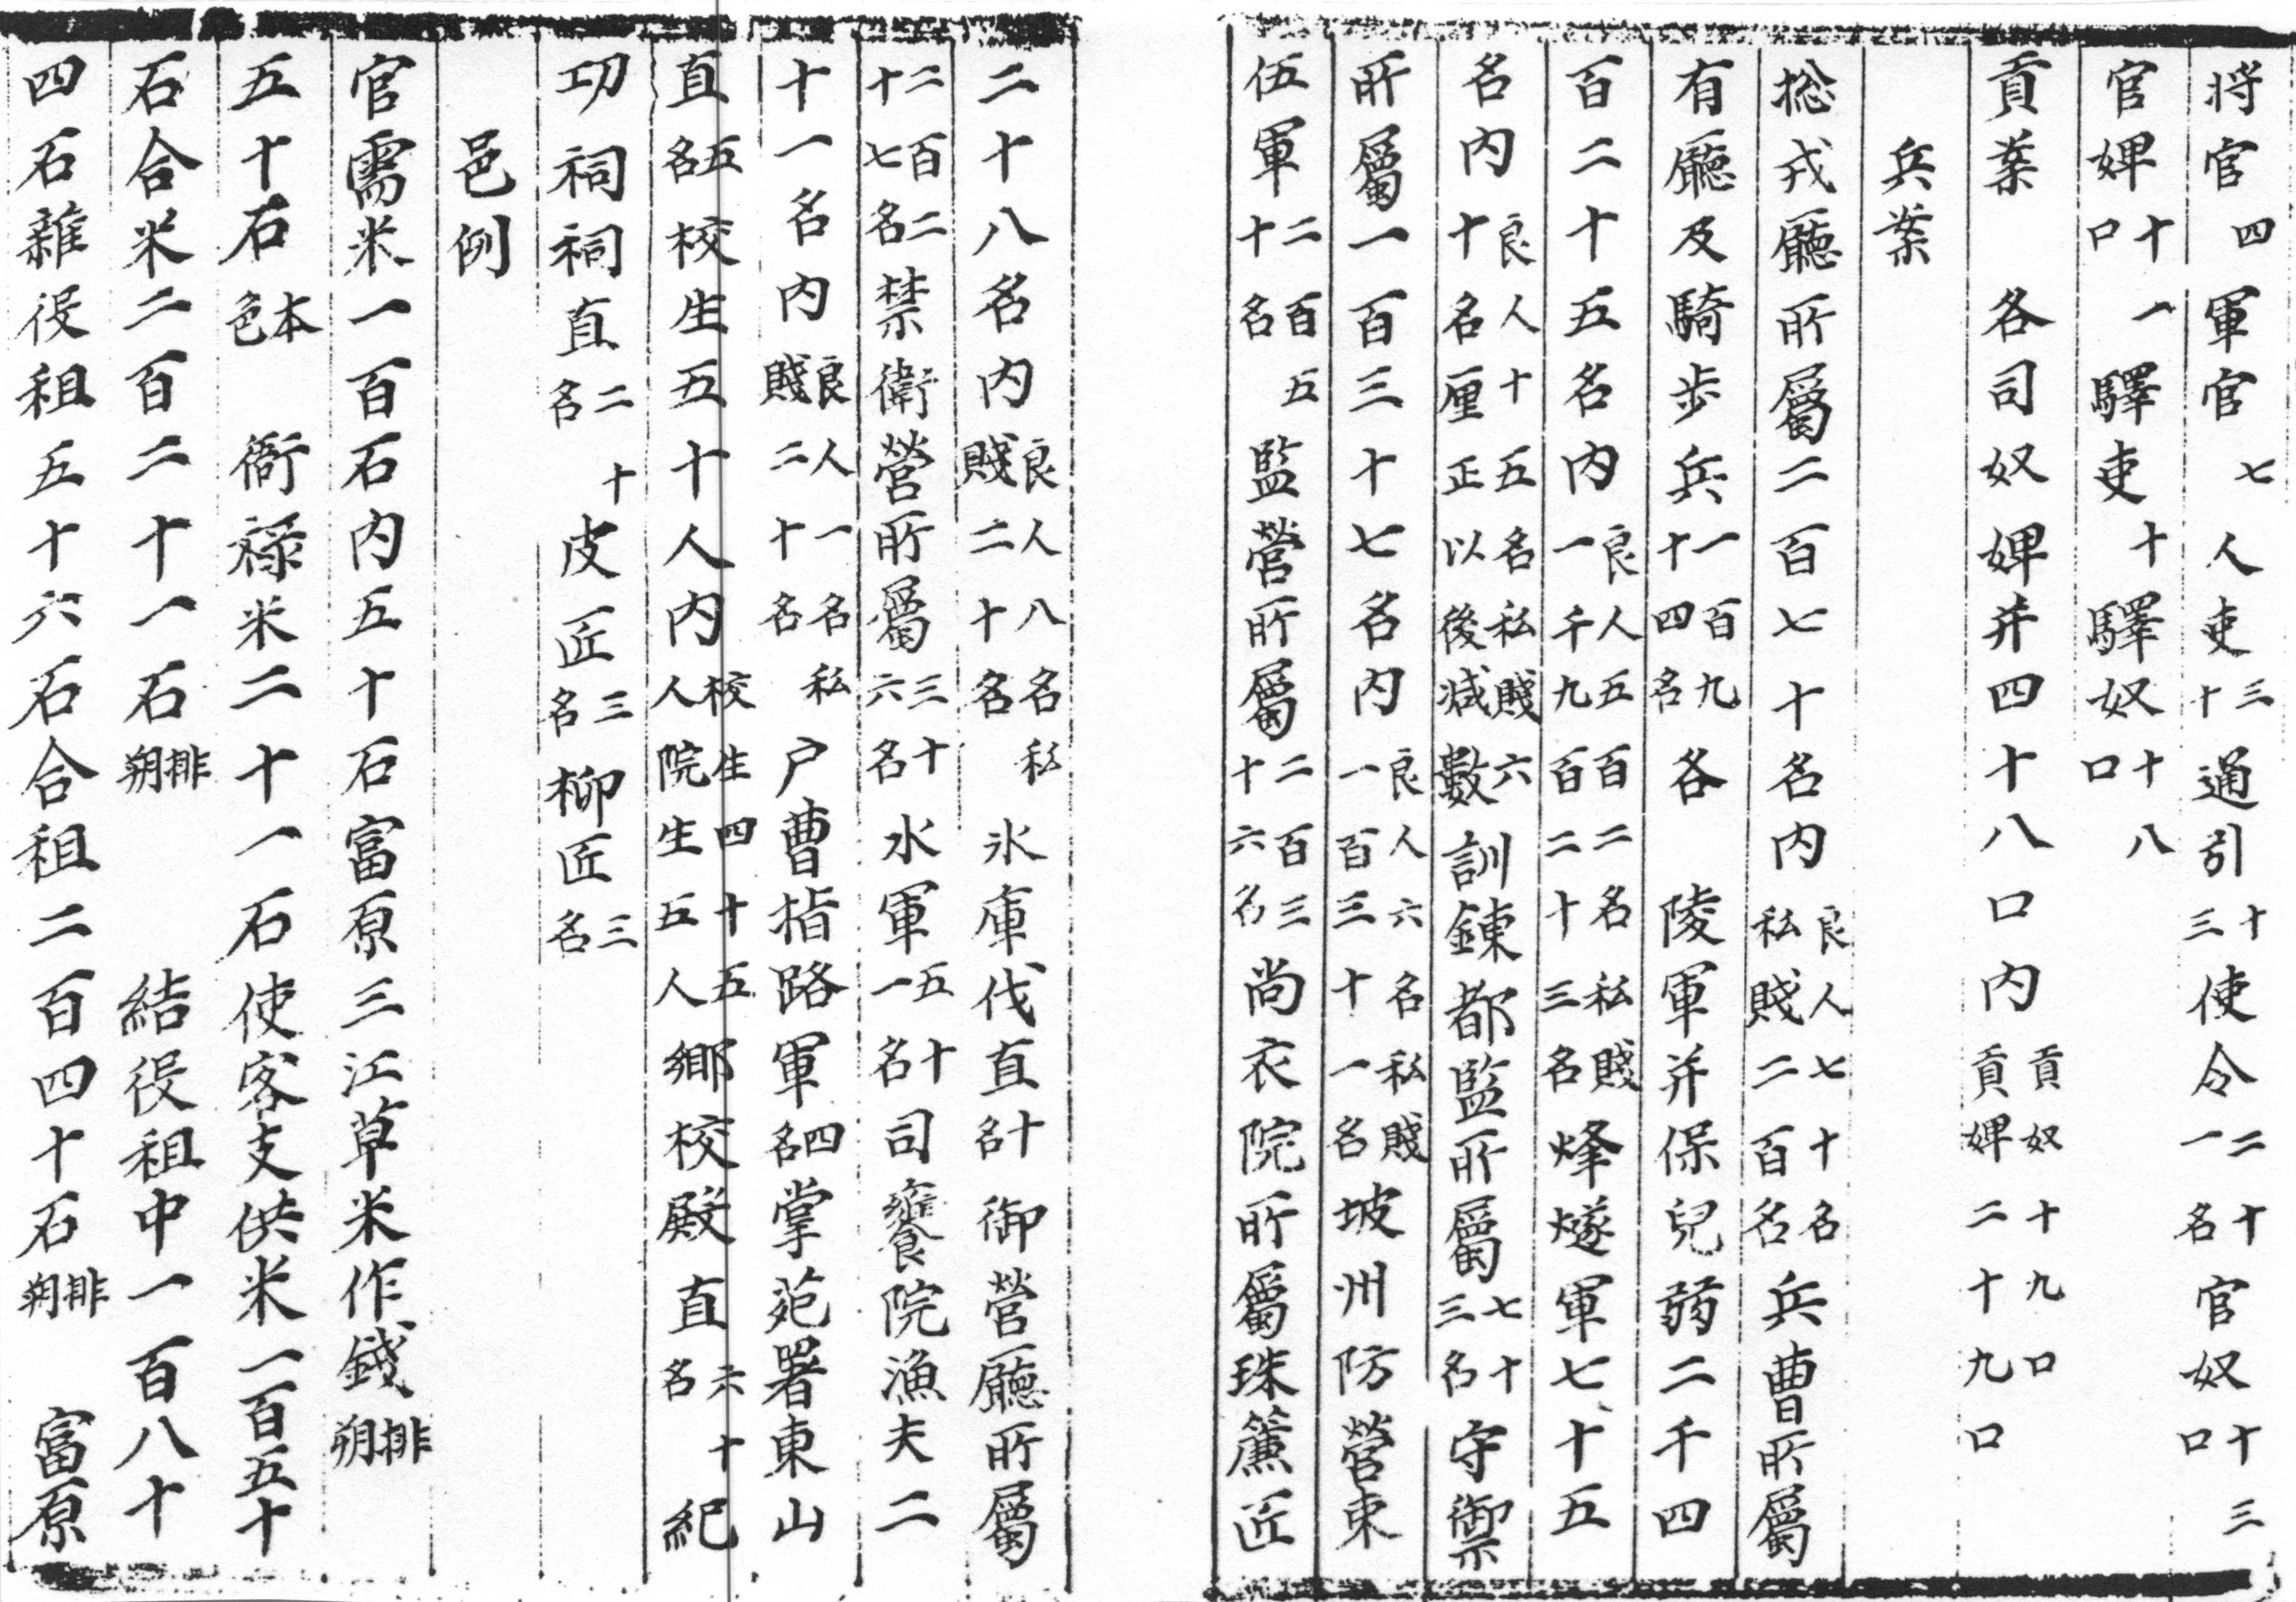 将官四軍官七人吏三十通引十三使令二十一名官奴十三口
官婢十一口驛吏十驛奴十八口
貢案 各司奴婢并四十八口内貢奴十九口貢婢二十九口
兵案
捴戎廳所屬二百七十名内良人七十名私賤二百名兵曹所屬
有廳及騎步兵一百九十四名各 陵軍并保兒弱二千四
百二十五名内良人五百二名私賤一千九百二十三名烽燧軍七十五
名内良人十五名私賤六十名厘正以後减數訓鍊都監所屬七十三名守禦
所屬一百三十七名内良人六名私賤一百三十一名坡州防營束
伍軍二百五十名監營所屬二百三十六名尚衣院所屬珠簾匠
二十八名内良人八名私賤二十名氷庫伐直十名御營廳所屬
二百二十七名禁衛營所屬三十六名水軍五十一名司饔院漁夫二
十一名内良人一名私賤二十名户曹指路軍四名掌苑署東山
直五名校生五十人内校生四十五人院生五人鄉校殿直六十名紀
功祠祠直二十名皮匠三名柳匠三名
邑例
官需米一百石内五十石富原三江草米作錢排朔
五十石本色 衙祿米二十一石使客支供米一百五十
石合米二百二十一石排朔 結役租中一百八十
四石雜役租五十六石合租二百四十石排朔 富原